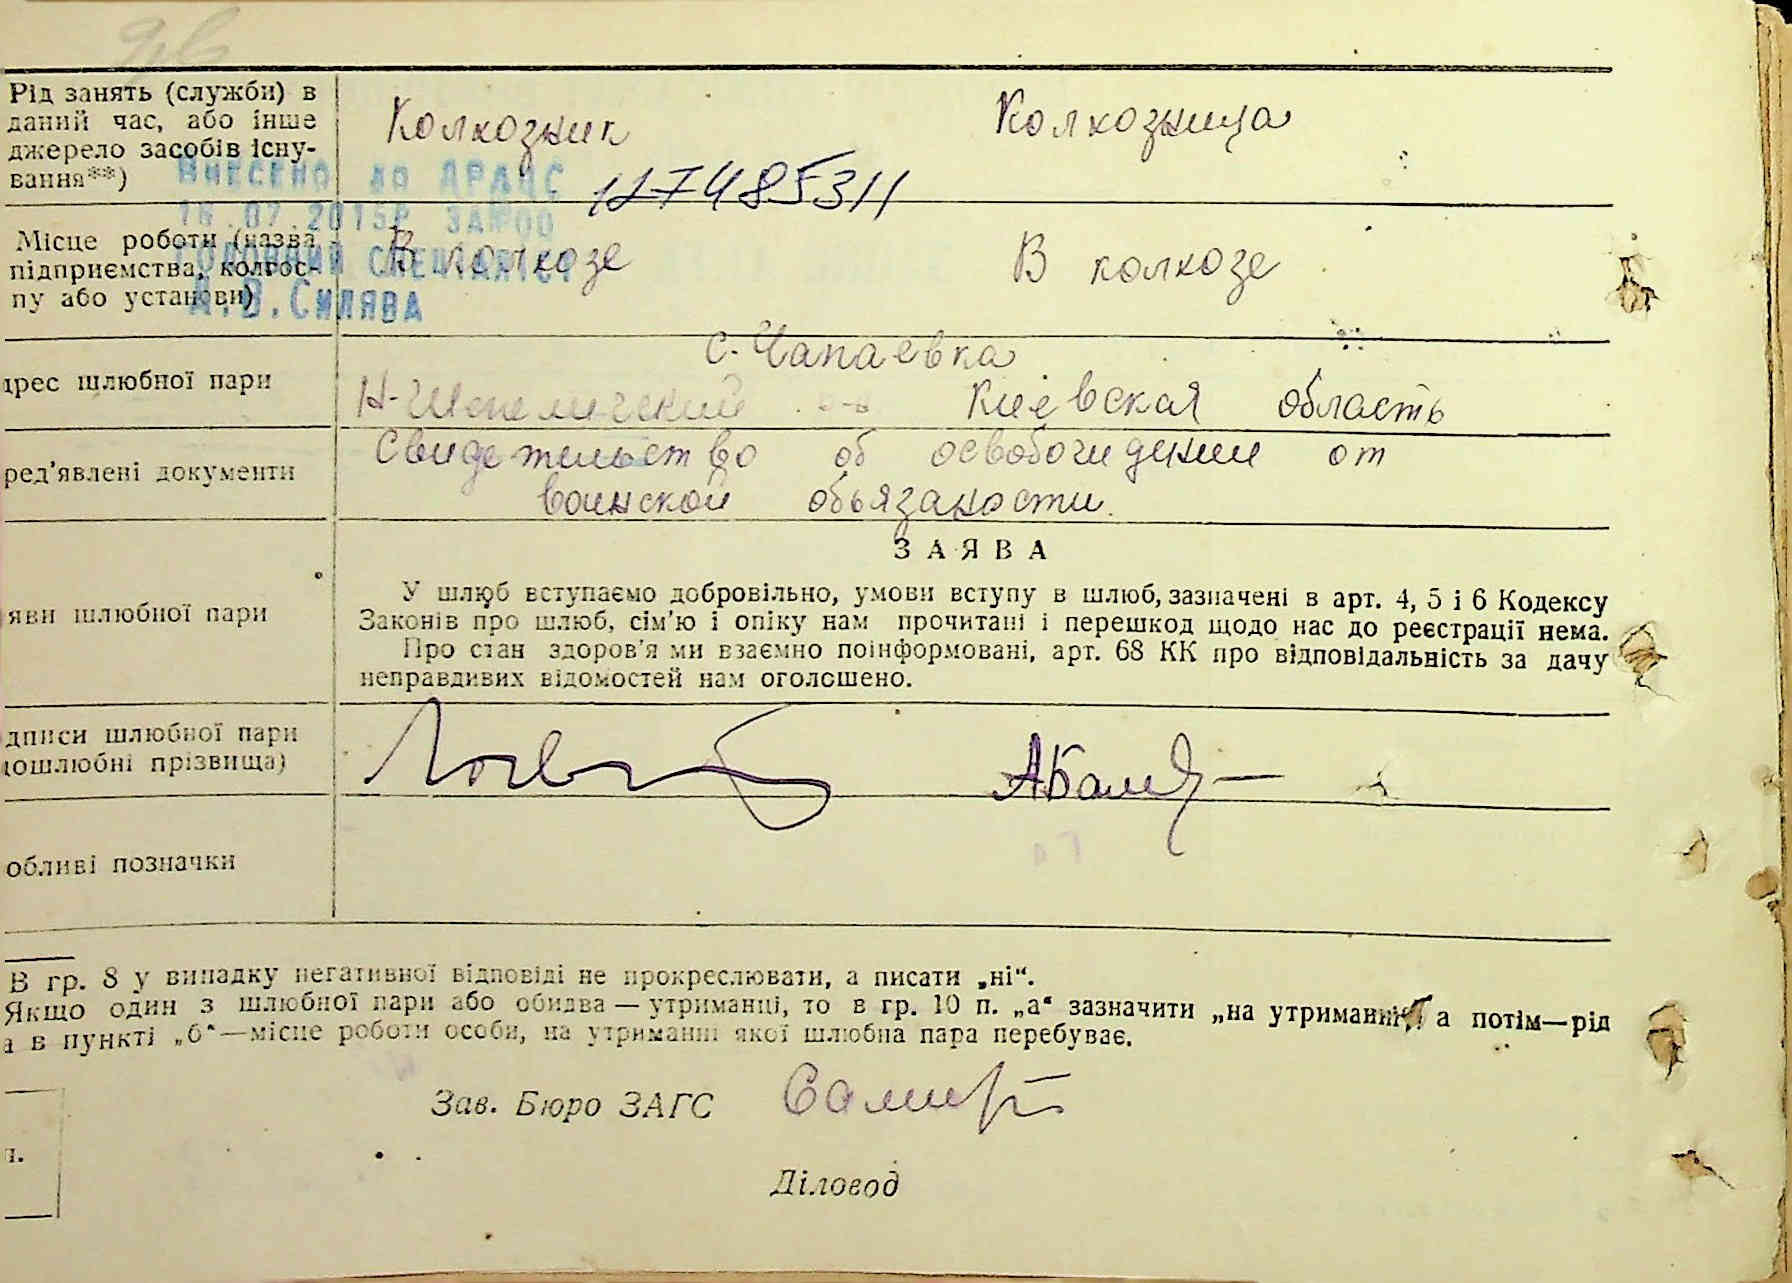 Рід занять (служби) в
даний час, або інше
джерело засобів існу-
вання**)
Колхозник
Колхозница
ВНЕСЕНО до ДРАЦС
127485311
16.07.2015р. ЗАМ00
Місце роботи (назва
підприємства, колгос-
пу або установи)
В колхозе
В колхозе
ГОЛОВНИЙ СПЕЦІАЛІСТ
А.В.СИЛЯВА
дрес шлюбної пари
с. Чапаевка
Н-Шепеличский Киевская область
ред'явлені документи
Свидетельство об освобочидении от
воинской обьязаности.
ЗАЯВА
яви шлюбної пари
У шлюб вступаємо добровільно, умови вступу в шлюб, зазначені в арт. 4, 5 і 6 Кодексу
Законів про шлюб, сім'ю і опіку нам прочитані і перешкод щодо нас до реєстрації нема.
Про стан здоров'я ми взаємно поінформовані, арт. 68 КК про відповідальність за дачу
неправдивих відомостей нам оголошено.
дписи шлюбної пари
дошлюбні прізвища)
обливі позначки
В гр. 8 у випадку негативної відповіді не прокреслювати, а писати „ні“.
Якщо один з шлюбної пари або обидва — утриманці, то в гр. 10 п. „а“ зазначити „на утриманні“, а потім—рід
а в пункті „б“—місце роботи особи, на утриманні якої шлюбна пара перебуває.
Зав. Бюро ЗАГС
Діловод